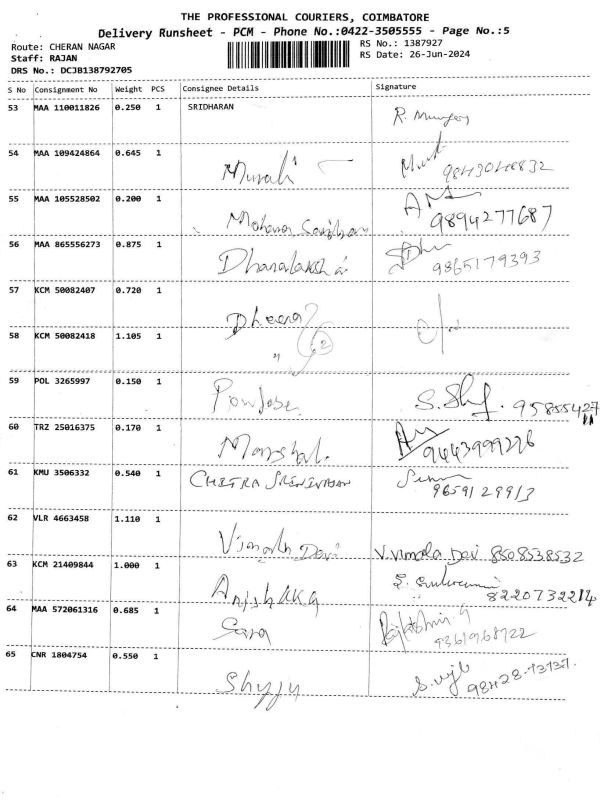 THE PROFESSIONAL COURIERS, COIMBATORE
Delivery Runsheet - PCM - Phone No.:0422-3505555 - Page No.:5
Route: CHERAN NAGAR
RS No.: 1387927
Staff: RAJAN
RS Date: 26-Jun-2024
DRS No.: DCJB138792705
S No Consignment No Weight PCS Consignee Details Signature
53 MAA 110011826 0.250 1 SRIDHARAN
54 MAA 109424864 0.645 1
Murali
55 MAA 105528502 0.200 1
9894277687
56 MAA 865556273 0.875 1
9865179393
57 KCM 50082407 0.720 1
58 KCM 50082418 1.105 1
59 POL 3265997 0.150 1
60 TRZ 25016375 0.170 1
9443999226
61 KMU 3506332 0.540 1 CHITRA SRINIVASAN
9659129913
62 VLR 4663458 1.110 1
V. Vimala Devi 8508538532
63 KCM 21409844 1.000 1
8220732214
64 MAA 572061316 0.685 1
Sara
9361968722
65 CNR 1804754 0.550 1
Shyju